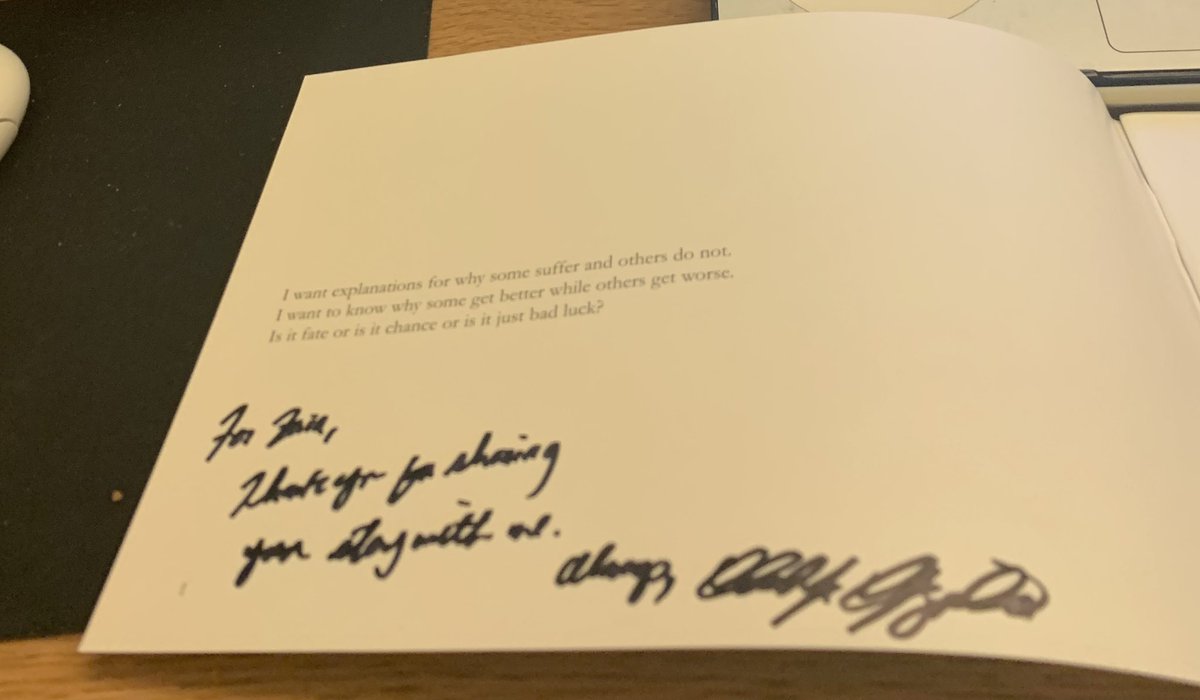 I want explanations for why some suffer and others do not.
I want to know why some get better while others get worse.
Is it fate or is it chance or is it just bad luck?
For
Thank you for sharing
your story with me.
Always,